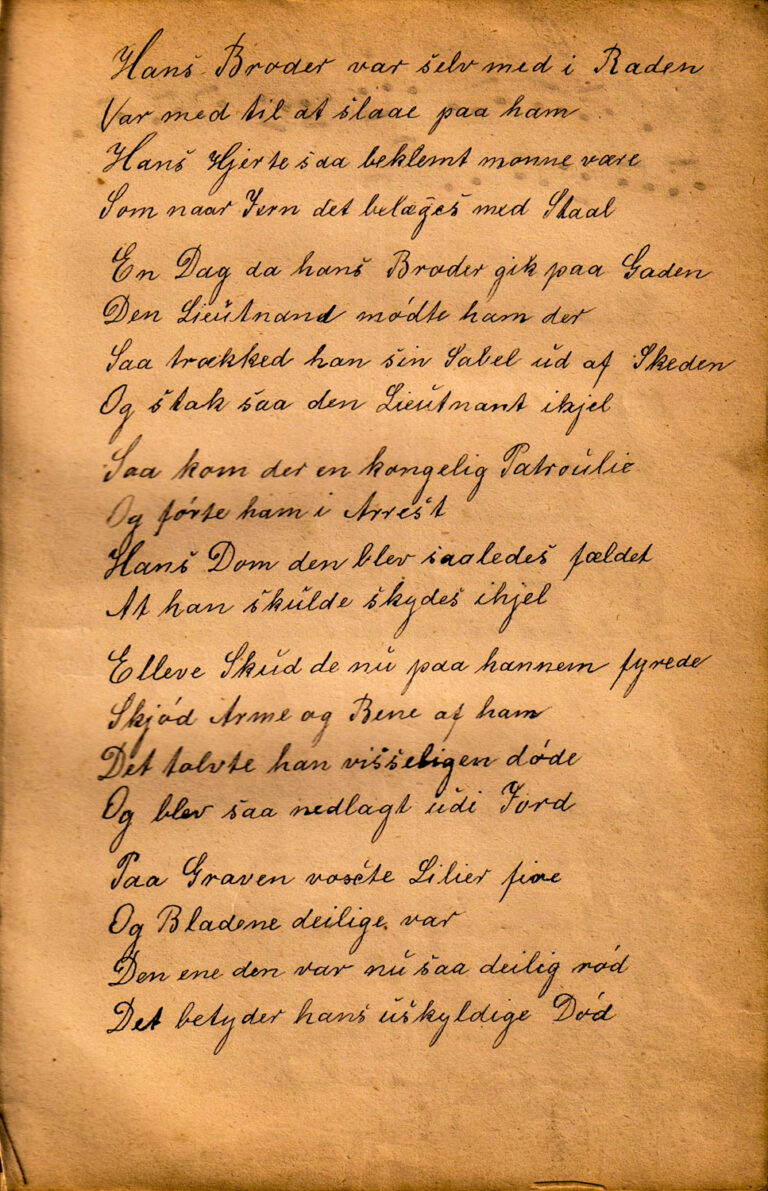 Hans Broder var selv med i Raden
Var med til at slaae paa ham
Hans Hjerte saa beklemt monne være
Som naar Jern det belæges med Staal
En Dag da hans Broder gik paa Gaden
Den Lieutnand mødte ham der
Saa trækked han sin Sabel ud af Skeden
Og stak saa den Lieutnant ihjel
Saa kom der en kongelig Patroulie
Og førte ham i Arrest
Hans Dom den blev saaledes fældet
At han skulde skydes ihjel
Elleve Skud de nu paa hannem fyrede
Skjød Arme og Bene af ham
Det tolvte han visseligen døde
Og blev saa nedlagt udi Jord
Paa Graven voxte Lilier fire
Og Bladene deilige var
Den ene den var nu saa deilig rød
Det betyder hans uskyldige Død